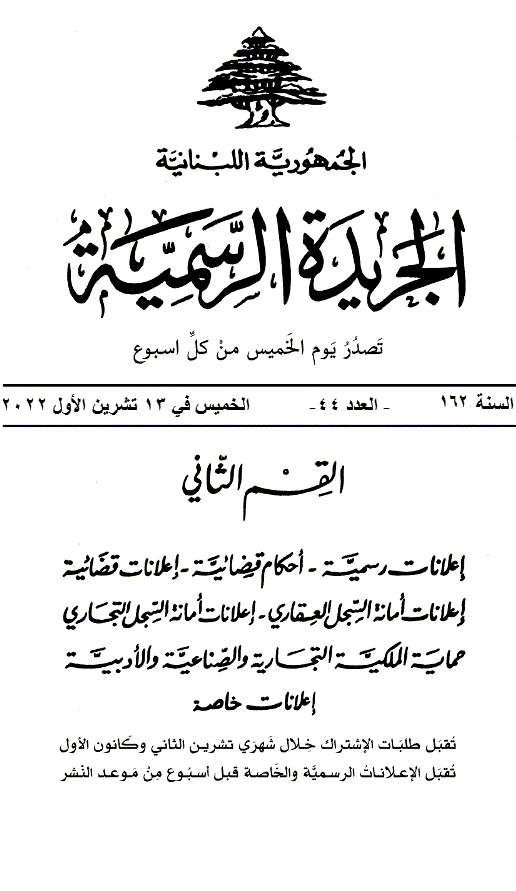 الجُمهُوريَّة اللبْنانيَّة
الجَريدَة الرسَّمِيَّة
تَصدُرُ يَوم الخَميس منْ كلِّ اسبوع
السنة ١٦٢ - العدد ٤٤- الخميس في ١٣ تشرين الأول ٢٠٢٢
القِسْم الثّاني
إعلانات رسميَّة - أحكام قضائيَّة - إعلانات قضائية
إعلانات أمانة السّجل العقاري - إعلانات أمانة السّجل التجاري
حماية الملكيَّة التجارية والصّناعيَّة والأدبيَّة
إعلانات خاصة
تُقبَل طلبَات الإشتراك خِلال شَهرَي تشرين الثاني وكَانون الأول
تُقبَل الإعلاناتُ الرسميَّة والخَاصة قبل أسبُوع مِنْ مَوعد النَشر